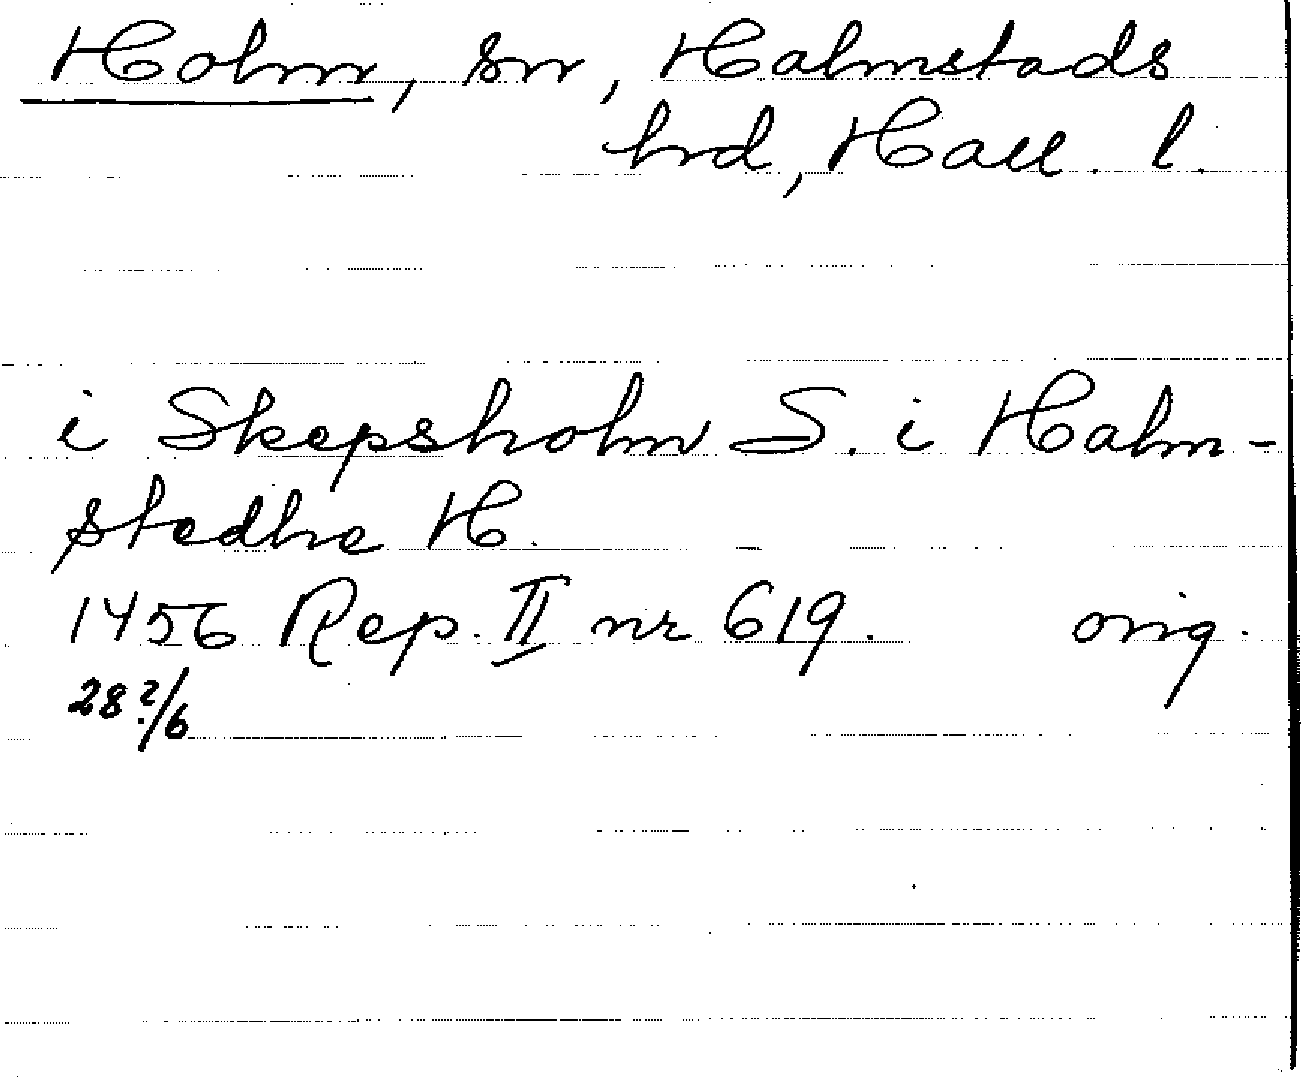 Holm, sn, Halmstads
hrd, Hall. l.
i Skepsholm S. i Halm-
stedhe H.
1456 Rep. II nr 619. orig.
28?/6